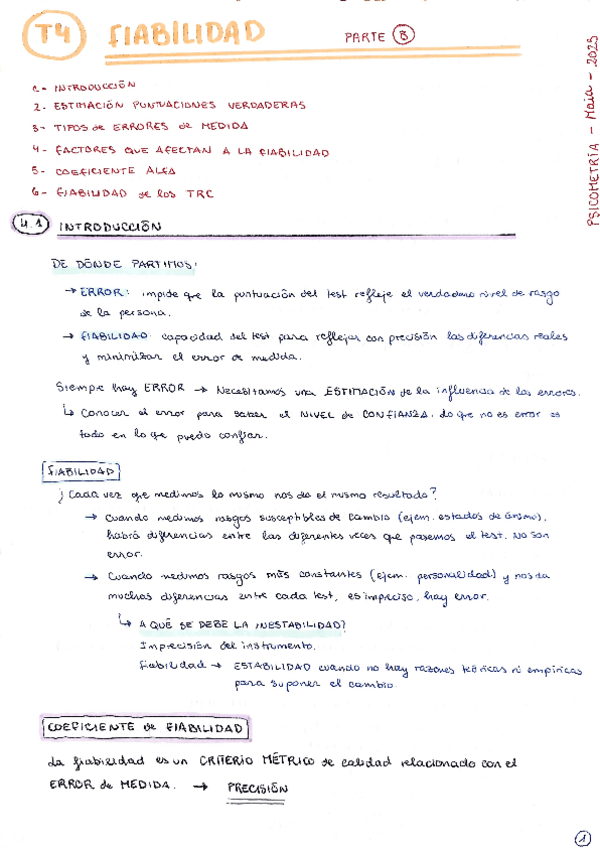 T4 FIABILIDAD PARTE B
1- INTRODUCCIÓN
2- ESTIMACIÓN PUNTUACIONES VERDADERAS
3- TIPOS de ERRORES de MEDIDA
4- FACTORES QUE AFECTAN A LA FIABILIDAD
5- COEFICIENTE ALFA
6- FIABILIDAD de los TRC
PSICOMETRÍA - Maia - 2025
4.1 INTRODUCCIÓN
DE DÓNDE PARTIMOS:
→ ERROR: impide que la puntuación del test refleje el verdadero nivel de rasgo
de la persona.
→ FIABILIDAD: capacidad del test para reflejar con precisión las diferencias reales
y minimizar el error de medida.
Siempre hay ERROR → Necesitamos una ESTIMACIÓN de la influencia de los errores.
↳ Conocer el error para saber el NIVEL de CONFIANZA. Lo que no es error es
todo en lo que puedo confiar.
FIABILIDAD
¿Cada vez que medimos lo mismo nos da el mismo resultado?
→ Cuando medimos rasgos susceptibles de cambio (ejem. estados de ánimo),
habrá diferencias entre las diferentes veces que pasemos el test. No son
error.
→ Cuando medimos rasgos más constantes (ejem. personalidad) y nos da
muchas diferencias entre cada test, es impreciso, hay error.
↳ A QUÉ SE DEBE LA INESTABILIDAD?
Imprecisión del instrumento.
Fiabilidad → ESTABILIDAD cuando no hay razones teóricas ni empíricas
para suponer el cambio.
COEFICIENTE de FIABILIDAD
La fiabilidad es un CRITERIO MÉTRICO de calidad relacionado con el
ERROR de MEDIDA. → PRECISIÓN
1